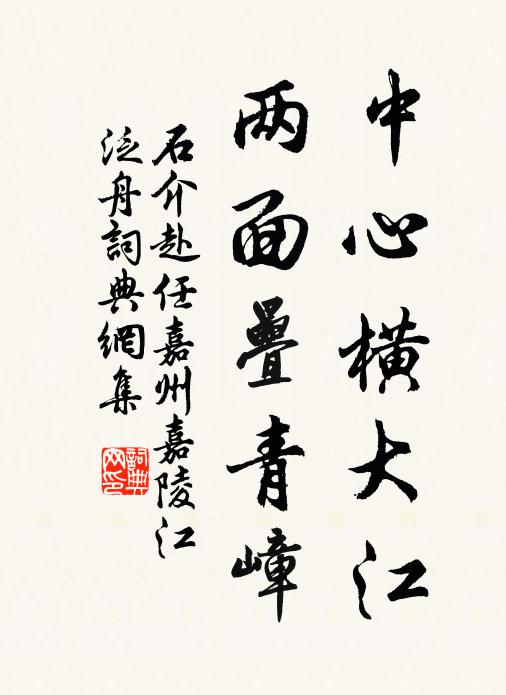 中心橫大江
两面疊青嶂
石介赴任嘉州嘉陵江
泛舟詞典網集
詞典网印